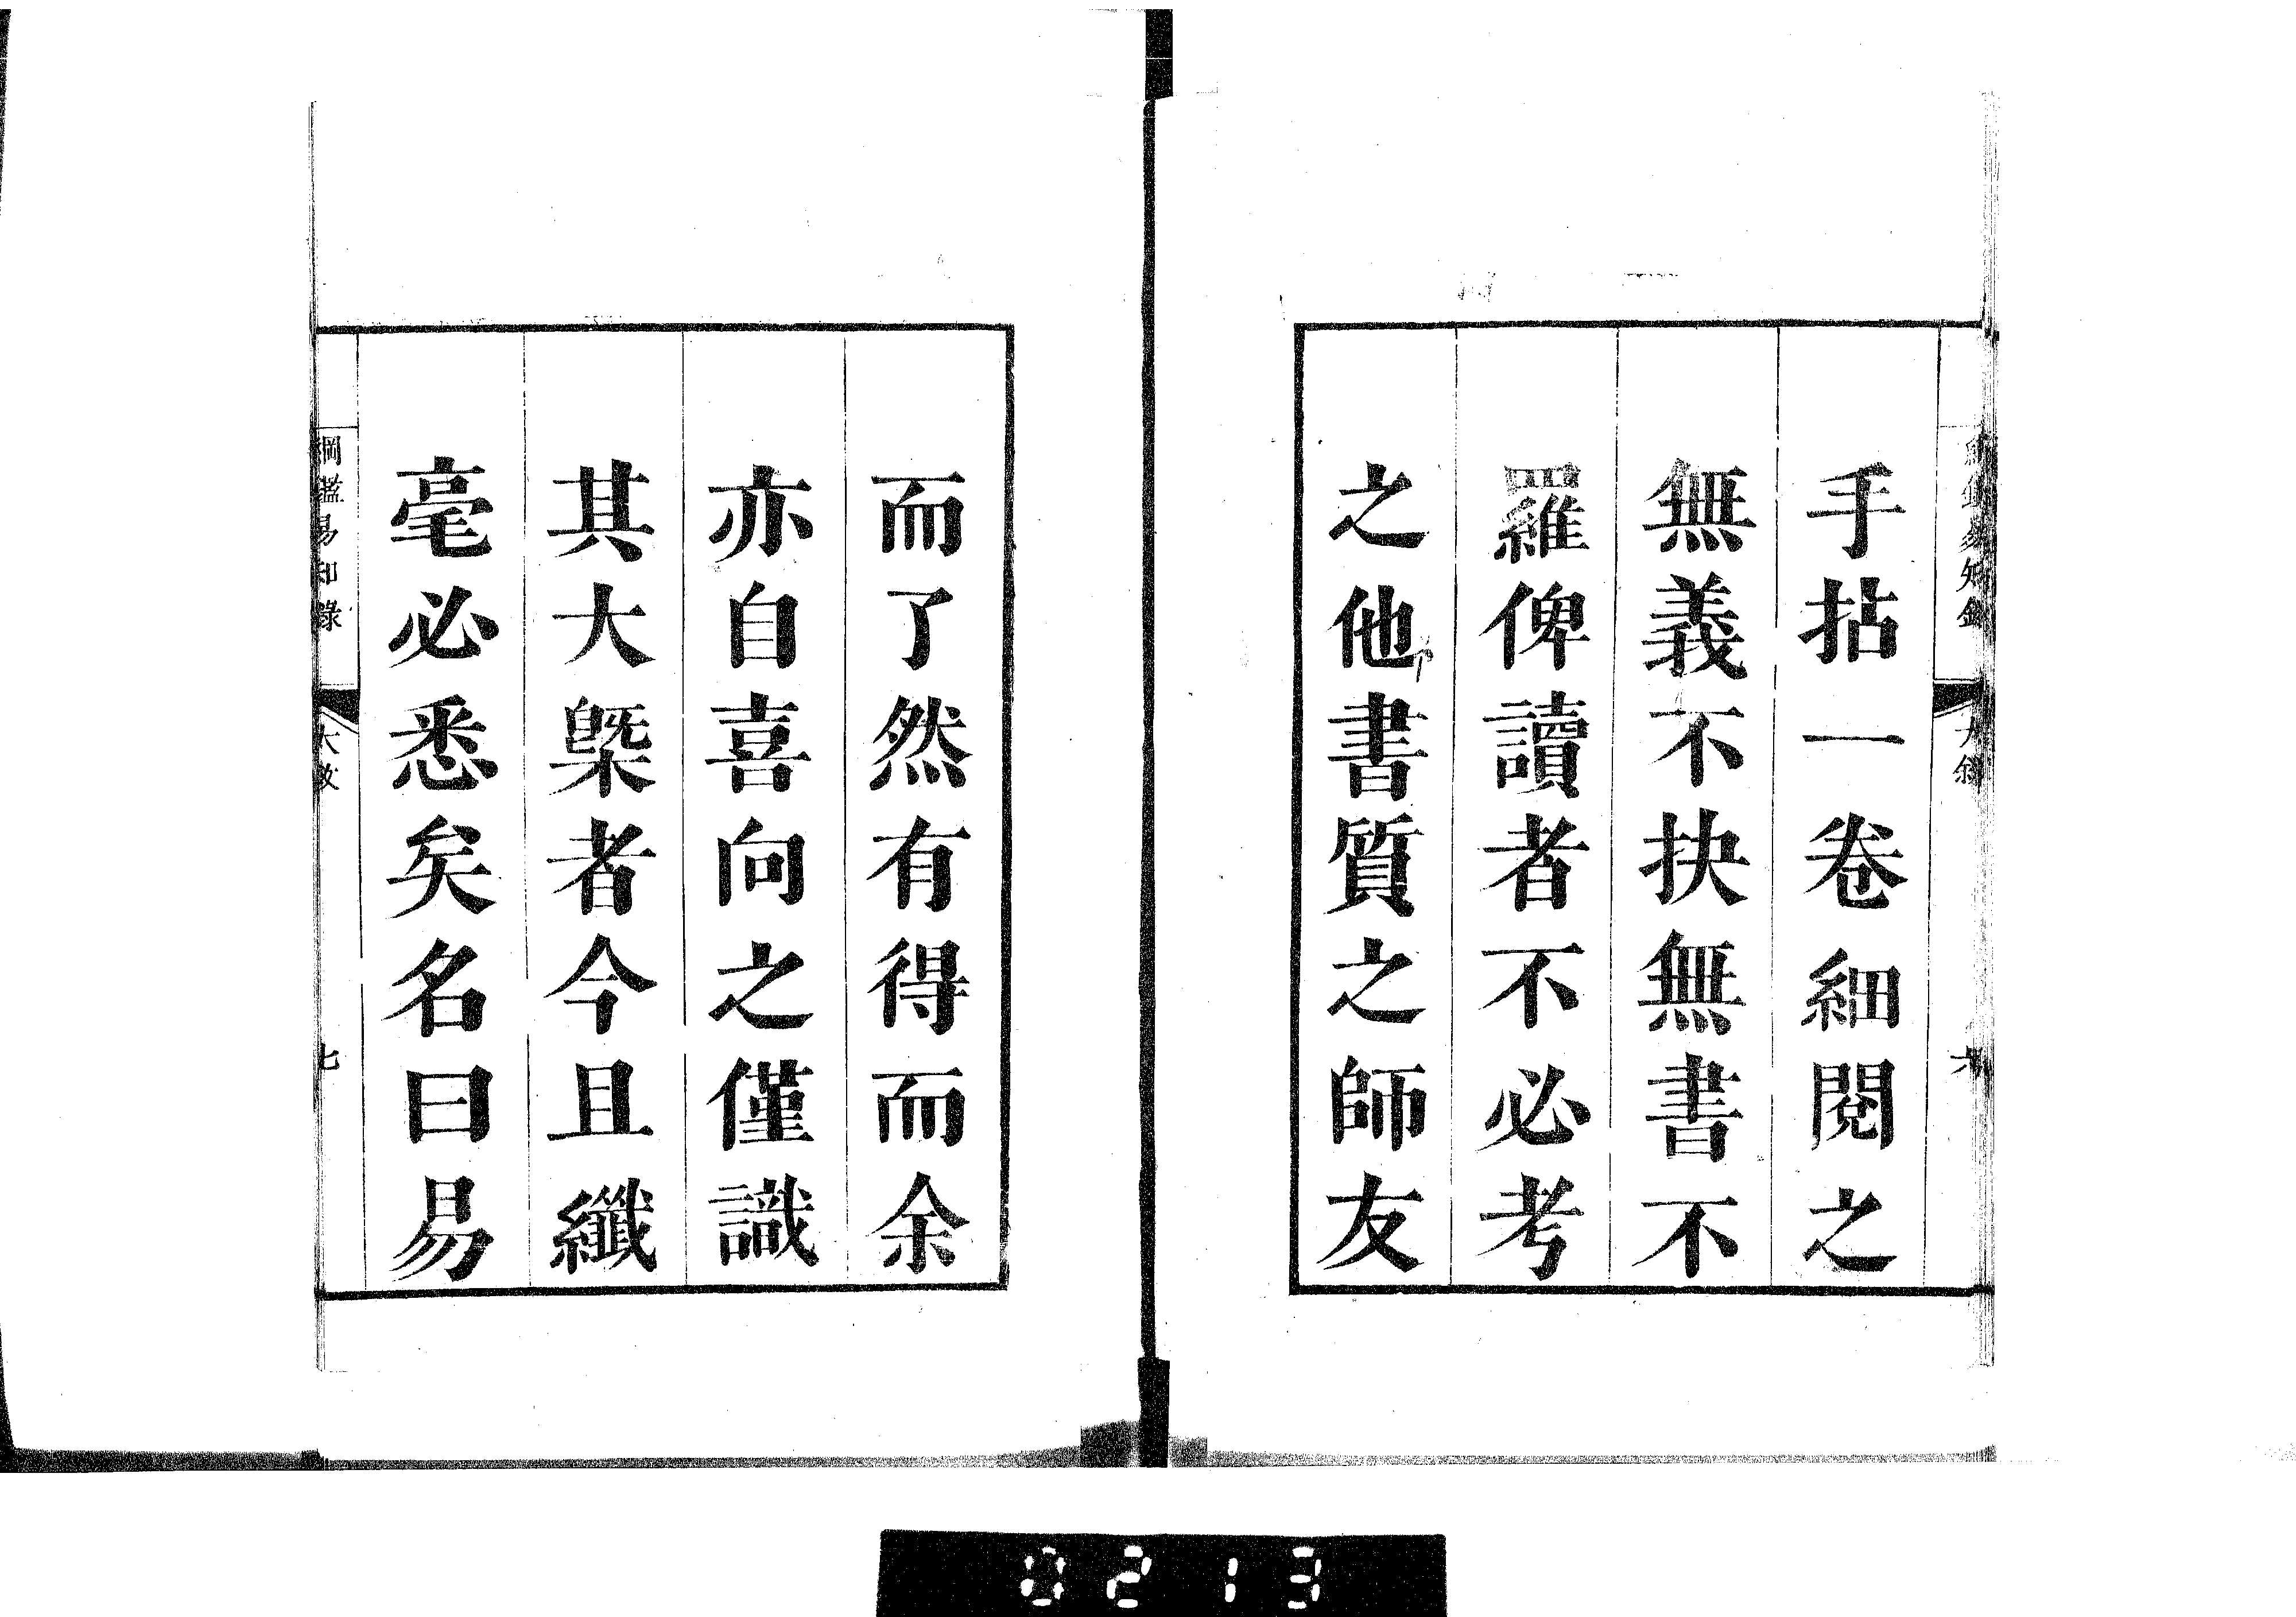 手拈一卷細閱之
無義不抉無書不
羅俾讀者不必考
之他書質之師友
而了然有得而余
亦自喜向之僅識
其大槩者今且纖
毫必悉矣名曰易
綱鑑易知錄
七
0213